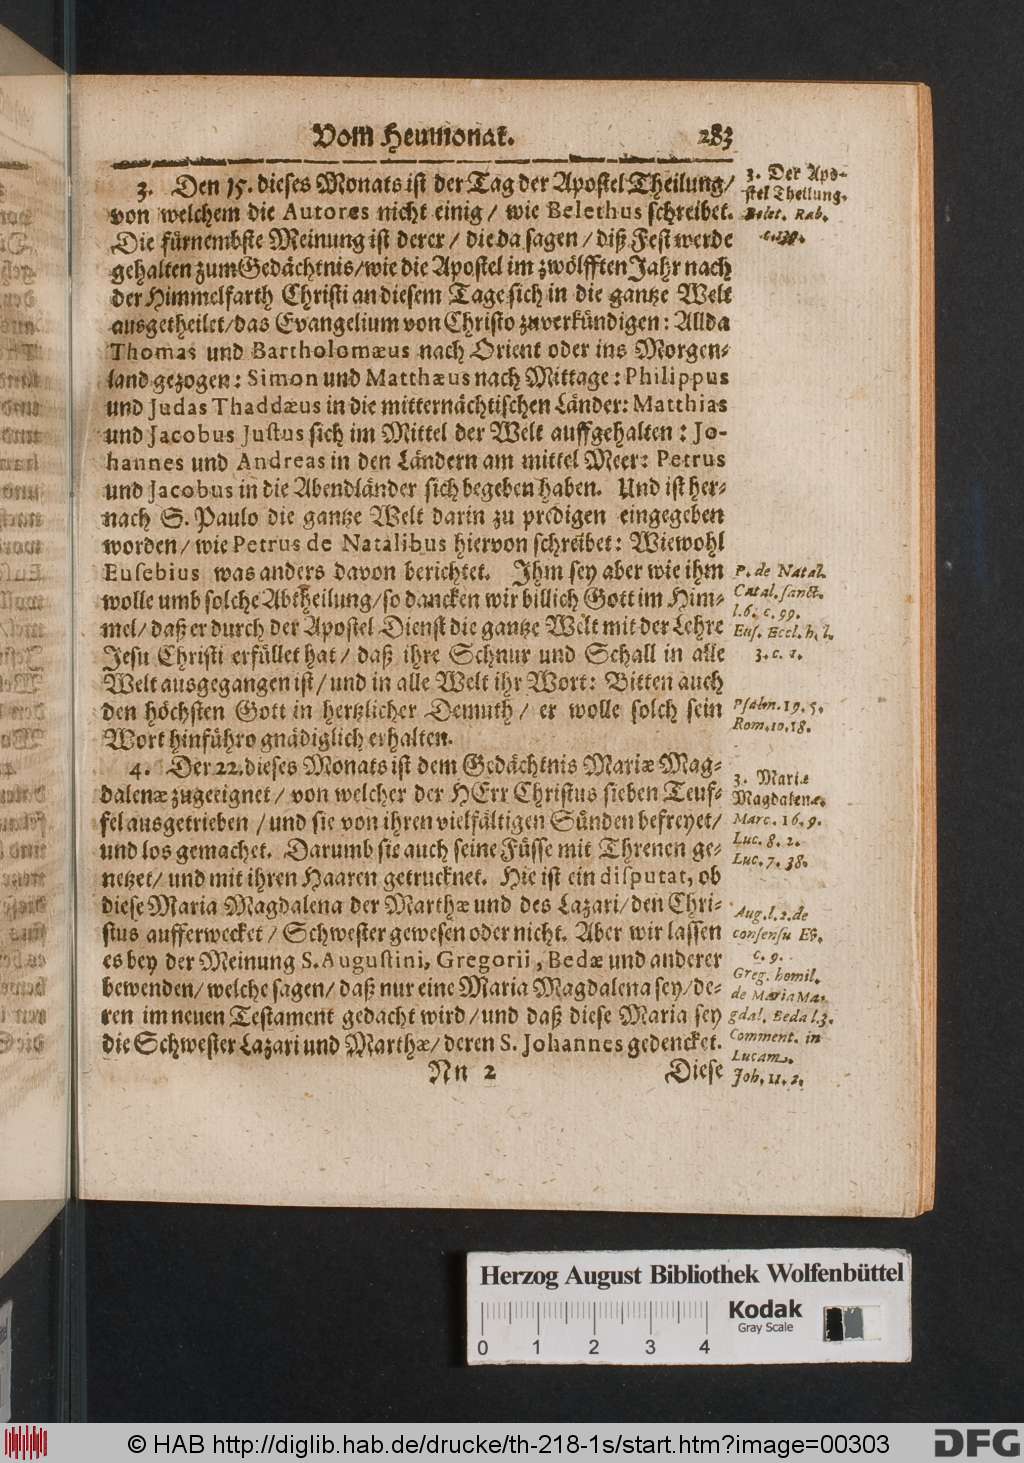 Vom Heumonat. 283
3. Den 15. dieses Monats ist der Tag der Apostel Theilung/
von welchem die Autores nicht einig/ wie Belethus schreibet.
Die fürnembste Meinung ist derer/ die da sagen/ diß Fest werde
gehalten zum Gedächtnis/ wie die Apostel im zwölfften Jahr nach
der Himmelfarth Christi an diesem Tage sich in die gantze Welt
ausgetheilet/ das Evangelium von Christo zuverkündigen: Allda
Thomas und Bartholomæus nach Orient oder ins Morgen-
land gezogen: Simon und Matthæus nach Mittage: Philippus
und Judas Thaddæus in die mitternächtischen Länder: Matthias
und Jacobus Justus sich im Mittel der Welt auffgehalten: Jo-
hannes und Andreas in den Ländern am mittel Meer: Petrus
und Jacobus in die Abendländer sich begeben haben. Und ist her-
nach S. Paulo die gantze Welt darin zu predigen eingegeben
worden/ wie Petrus de Natalibus hiervon schreibet: Wiewohl
Eusebius was anders davon berichtet. Ihm sey aber wie ihm
wolle umb solche Abtheilung/ so dancken wir billich Gott im Him-
mel/ daß er durch der Apostel Dienst die gantze Welt mit der Lehre
Jesu Christi erfüllet hat/ daß ihre Schnur und Schall in alle
Welt ausgegangen ist/ und in alle Welt ihr Wort: Bitten auch
den höchsten Gott in hertzlicher Demuth/ er wolle solch sein
Wort hinführo gnädiglich erhalten.
4. Der 22. dieses Monats ist dem Gedächtnis Mariæ Mag-
dalenæ zugeeignet/ von welcher der HErr Christus sieben Teuf-
fel ausgetrieben/ und sie von ihren vielfältigen Sünden befreyet/
und los gemachet. Darumb sie auch seine Füsse mit Threnen ge-
netzet/ und mit ihren Haaren getrucknet. Hie ist ein disputat, ob
diese Maria Magdalena der Marthæ und des Lazari/ den Chri-
stus aufferwecket/ Schwester gewesen oder nicht. Aber wir lassen
es bey der Meinung S. Augustini, Gregorii, Bedæ und anderer
bewenden/ welche sagen/ daß nur eine Maria Magdalena sey/ de-
ren im neuen Testament gedacht wird/ und daß diese Maria sey
die Schwester Lazari und Marthæ/ deren S. Johannes gedencket.
Nn 2 Diese
3. Der Apo-
stel Theilung.
Belet. Rab.
P. de Natal.
Catal. sanct.
l. 6. c. 99.
Eus. Eccl. h. l.
3. c. 1.
Psalm. 19. 5.
Rom. 10. 18.
3. Mariæ
Magdalenæ.
Marc. 16. 9.
Luc. 8. 2.
Luc. 7. 38.
Aug. l. 2. de
consensu Ev.
c. 9.
Greg. homil.
de Maria Ma-
gdal. Beda l. 3.
Comment. in
Lucam.
Joh. 11. 2.
Herzog August Bibliothek Wolfenbüttel
Kodak
Gray Scale
0 1 2 3 4
© HAB http://diglib.hab.de/drucke/th-218-1s/start.htm?image=00303
DFG